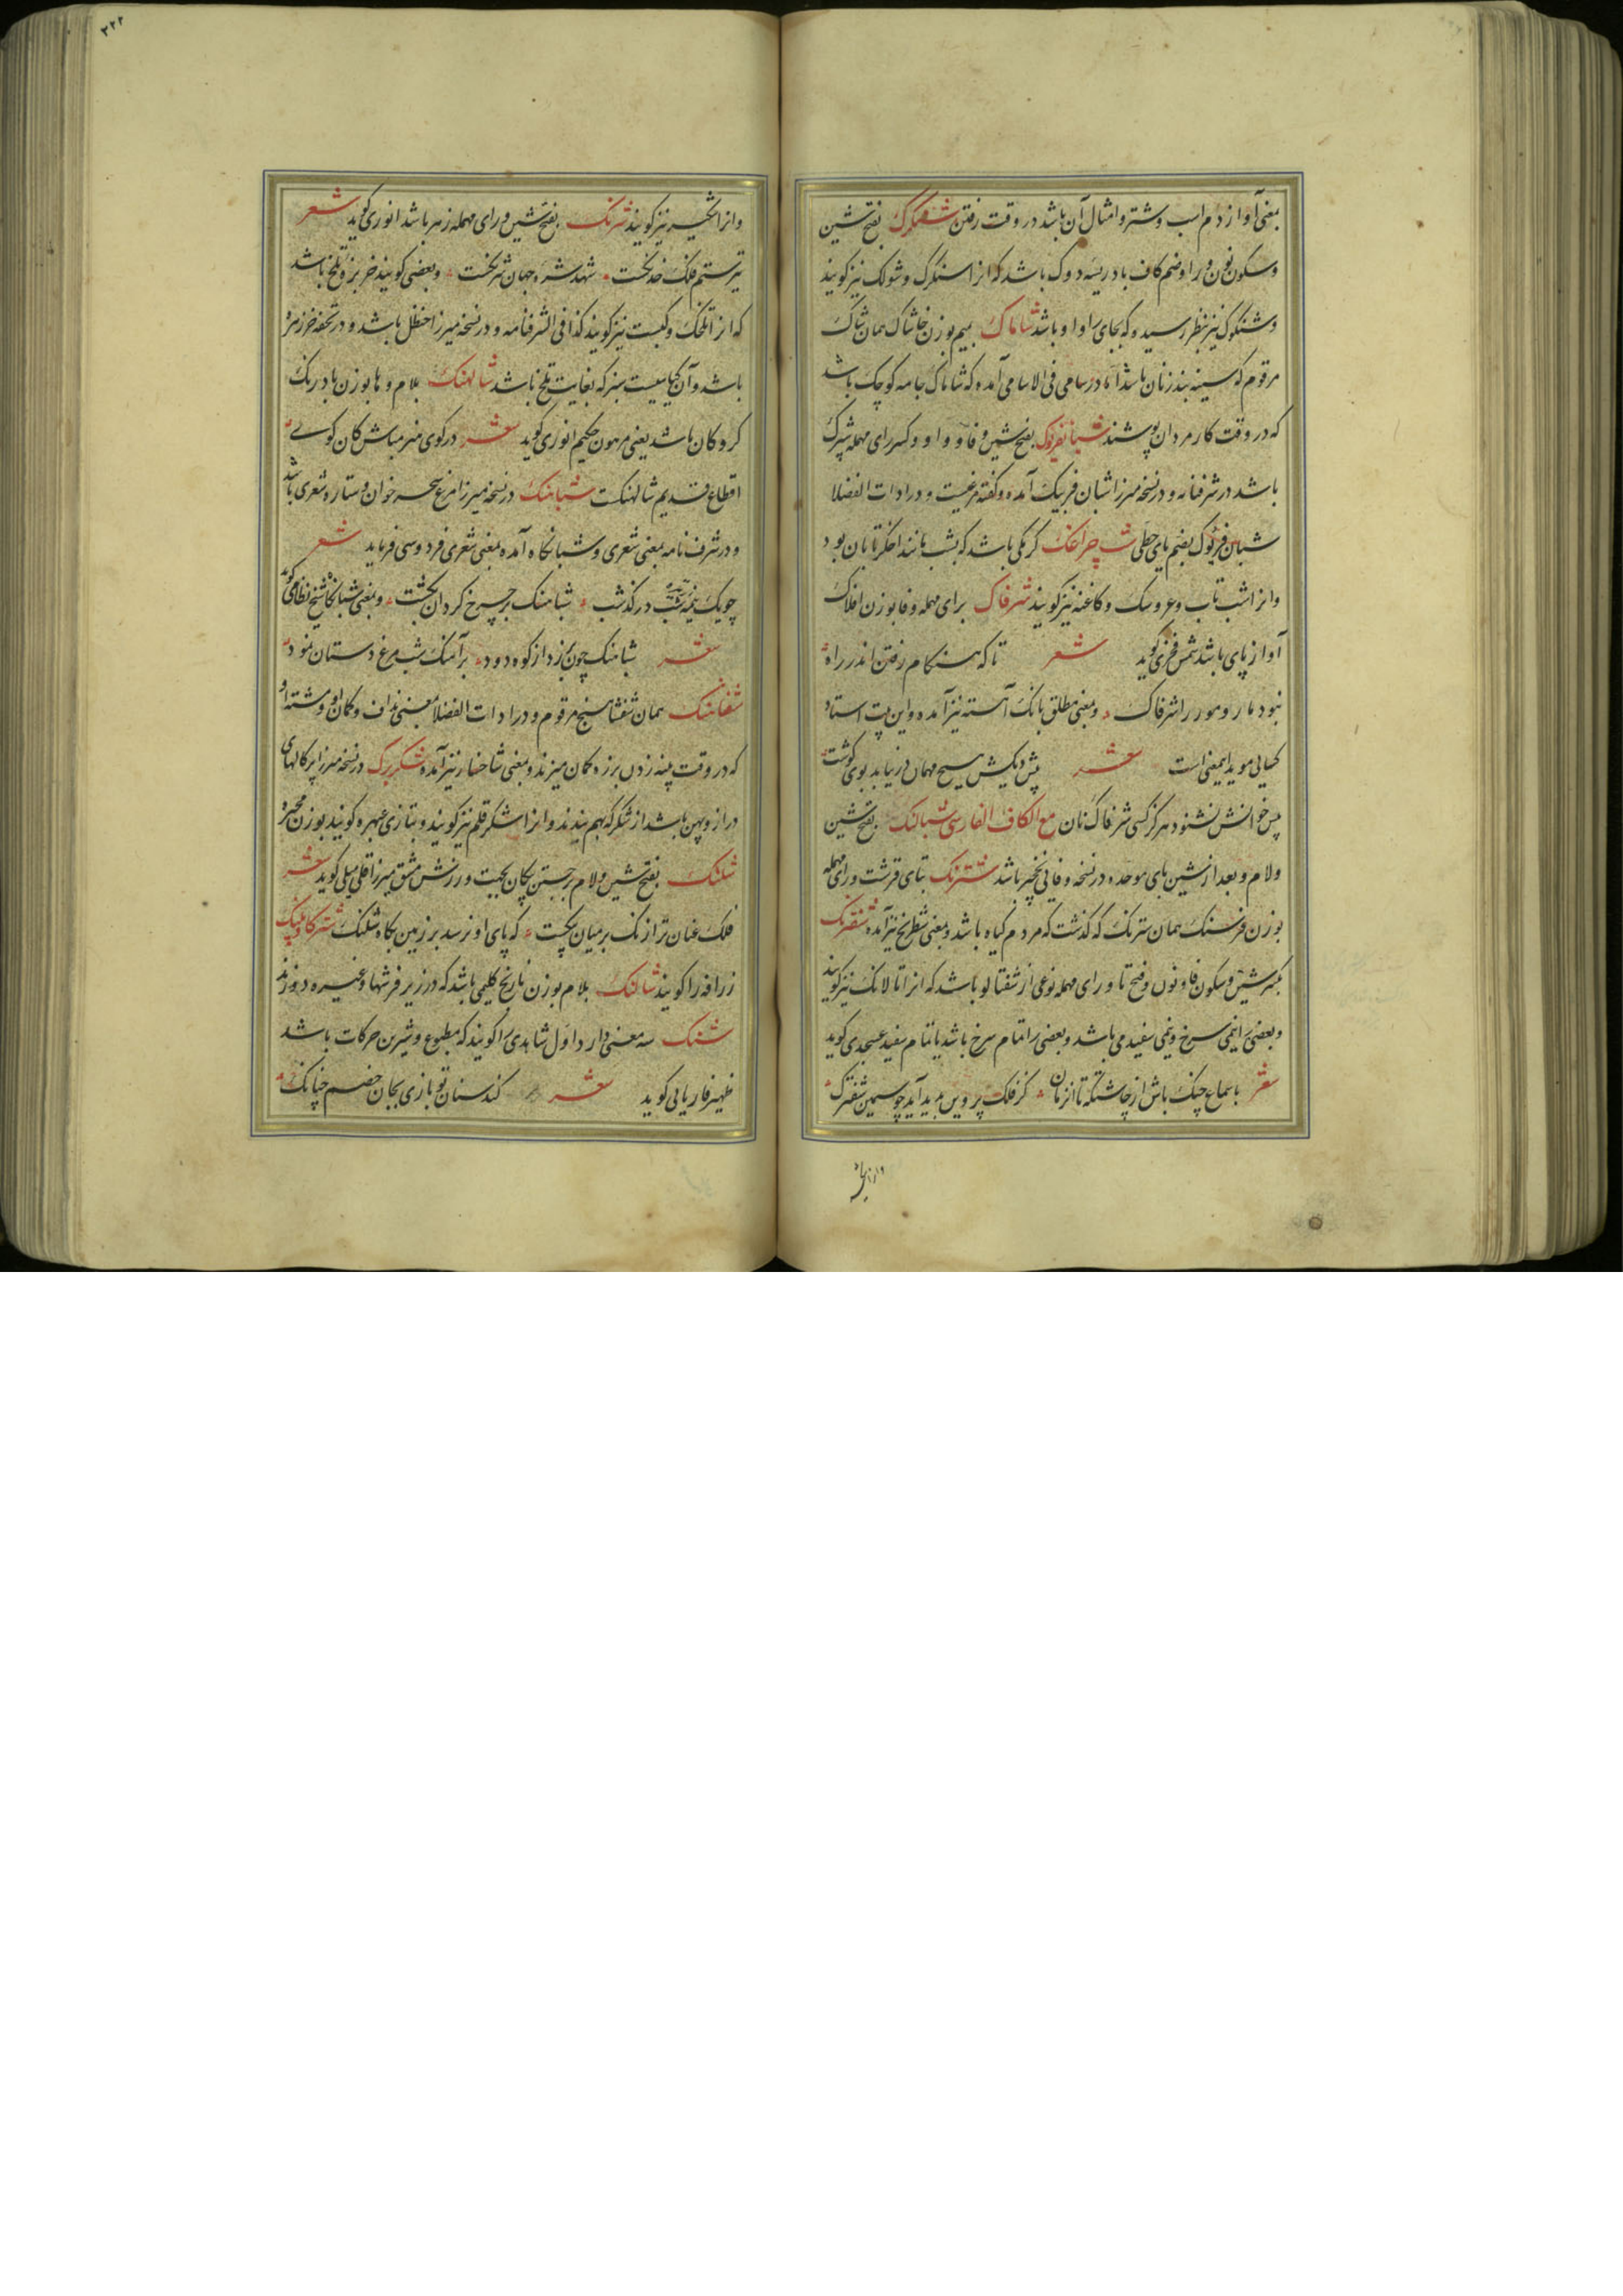 بمعنی آواز دم اسب و شتر و امثال آن باشد در وقت رفتن شنکرک بفتح شین
و سکون نون و را و ضم کاف بادریسه دوک باشد که انرا سنکرک و شولک نیز کویند
و شنکوک نیز بنظر رسیده که بجای را واو باشد شاماک بمیم بوزن خاشاک همان شاک
مرقوم که سینه بند زنان باشد اما در سامی فی الاسامی آمده که شاماک جامه کوچک باشد
که در وقت کار مردان پوشند بفتح شین و فا و واو و کسر رای مهمله شپرک
باشد در شرفنامه و در نسخه میرزا شبان فریبک آمده و کفته مرغیست و در ادات الفضلا
شبان فریوک بضم یای حطی شب چراغک کرمکی باشد که بشب مانند اخکر تابان بود
و انرا شب تاب و عروسک و کاغنه نیز کویند شرفاک برای مهمله و فا بوزن افلاک
آواز پای باشد شمس فخری کوید شعر تا که هنکام رفتن اندر راه
نبود مار و مور را شرفاک و بمعنی مطلق بانک آهسته نیز آمده و این بیت استاد
کسایی موید این معنی است شعر پیش دیکش هیچ مهمان در نیابد بوی کوشت
پس خوانش نشنود هرکز کسی شرفاک نان مع الکاف الفارسی شبالنک بفتح شین
و لام و بعد از شین بای موحده در نسخه وفائی نخچیر باشد شترنک بتای قرشت و رای مهمله
بوزن فرسنک همان سترنک که کذشت که مردم کیاه باشد و بمعنی شطرنج نیز آمده شفترنک
بکسر شین و سکون فا و نون و فتح تا و رای مهمله نوعی از شفتالو باشد که انرا تالانک نیز کویند
و بعضی را نیمی سرخ و نیمی سفید می باشد و بعضی را تمام سرخ باشد یا تمام سفید عسجدی کوید
شعر با سماع چنک باش از چاشتکه تا آنزمان کز فلک پروین پدید آید چو سیمین شفترک
۲۲۲
و انرا نیز کویند شرنک بفتح شین و رای مهمله زهر باشد انوری کوید شعر
تیر ستم فلک خدنکست شهد شره جهان شرنکست و بعضی کویند خربزه تلخ باشد
که انرا تلخک و کبست نیز کویند کذا فی الشرفنامه و در نسخه میرزا حنظل باشد و در تحفه خر زهره
باشد و آن کیاهیست سبز که بغایت تلخ باشد شالهنک بلام و ها بوزن بادرنک
کروکان باشد یعنی مرهون حکیم انوری کوید شعر در کوی هنر مباش کان کوی
اقطاع قدیم شالهنکست شباهنک در نسخه میرزا مرغ سحر خوان و ستاره شعری باشد
و در شرف نامه بمعنی شعری و شبانکاه آمده بمعنی شعری فردوسی فرماید شعر
چو یک نیمه شب درکذشت شباهنک بر چرخ کردان بکشت و بمعنی شبانکاه شیخ نظامی کوید
شعر شباهنک چون بر زد از کوه دود بر آهنک شب مرغ دستان نمود
شفاهنک همان شفشاهنج مرقوم و در ادات الفضلا بمعنی نداف و کمان او و مشته او
که در وقت پنبه زدن بر زه کمان میزند و بمعنی شاخسار نیز آمده شکربرک در نسخه میرزا پرکالهای
دراز و پهن باشد از شکر که بهم بندند و انرا شکر قلم نیز کویند و بتازی عبهره کویند بوزن مجمره
شلنک بفتح شین و لام برجستن پکان بجهت ورزش مشق میرزا قلی میلی کوید شعر
فلک عنان تر از نک بر میان بکشت که پای او نرسد بر زمین بکاه شلنک شترکاوپلنک
زرافه را کویند شالنک بلام بوزن نارنج کلیمی باشد که در زیر فرشها و غیره دوزند
شنک سه معنی دارد اول شاهدی را کویند که مطبوع و شیرین حرکات باشد
ظهیر فاریابی کوید شعر کند سنان تو بازی بجان خصم چنانک